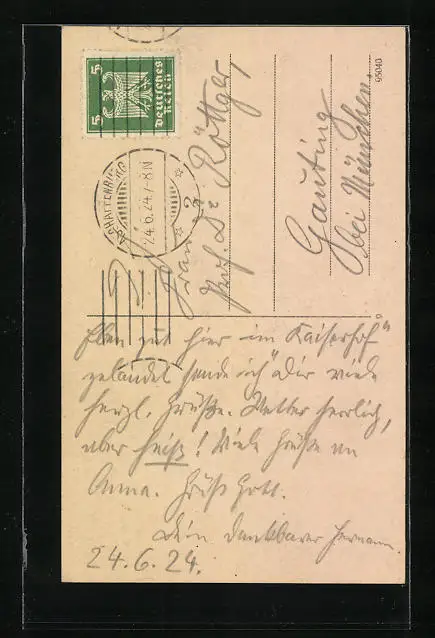 5 5
Deutsches
Reich
ASCHAFFENBURG
24.6.24.7-8N
* 2 *
Frau
Prof. Dr Röttger,
Gauting
bei München.
95040
Eben gut hier im "Kaiserhof"
gelandet sende ich Dir viele
herzl. Grüße. Wetter herrlich,
aber heiß! Viele Grüße an
Anna. Grüß Gott.
Dein dankbarer Hermann.
24.6.24.